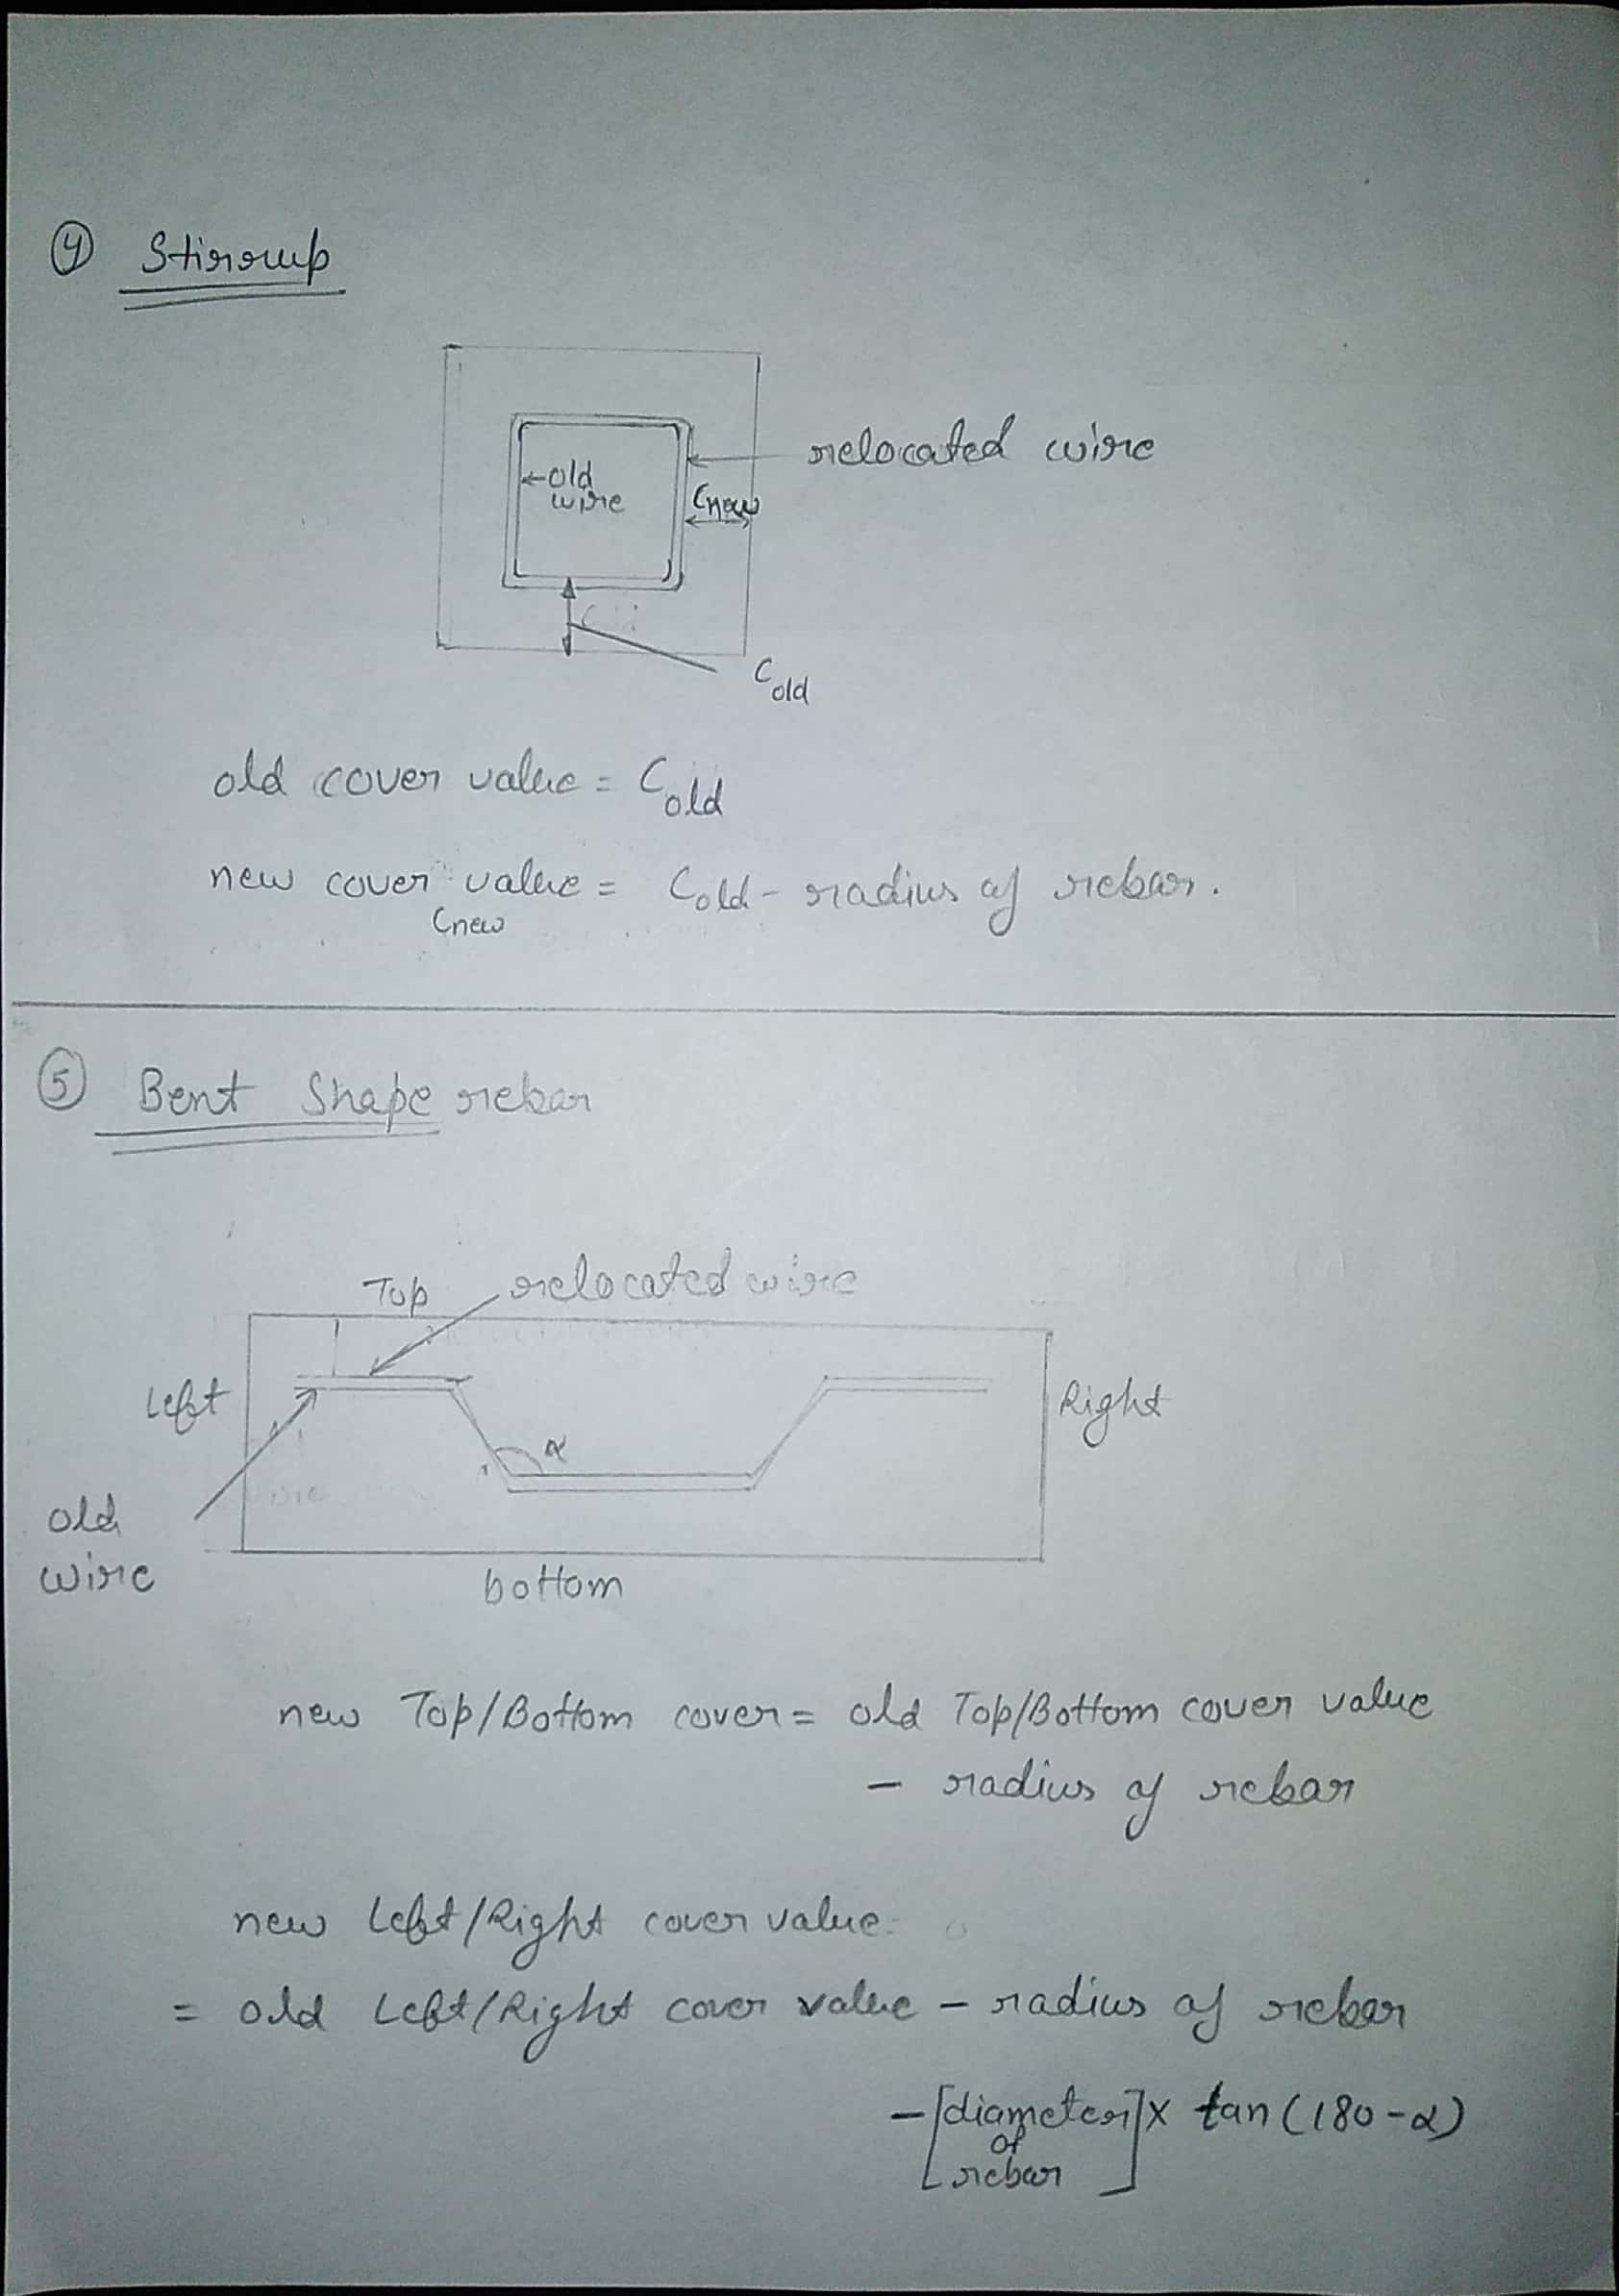 ④ Stirrup
relocated wire
old
wire
Cnew
Cold
old cover value = Cold
new cover value = Cold - radius of rebar.
Cnew
⑤ Bent Shape rebar
Top relocated wire
Left
Right
α
old
wire
bottom
new Top/Bottom cover = old Top/Bottom cover value
- radius of rebar
new Left/Right cover value
= old Left/Right cover value - radius of rebar
- [diameter of rebar] x tan (180-α)